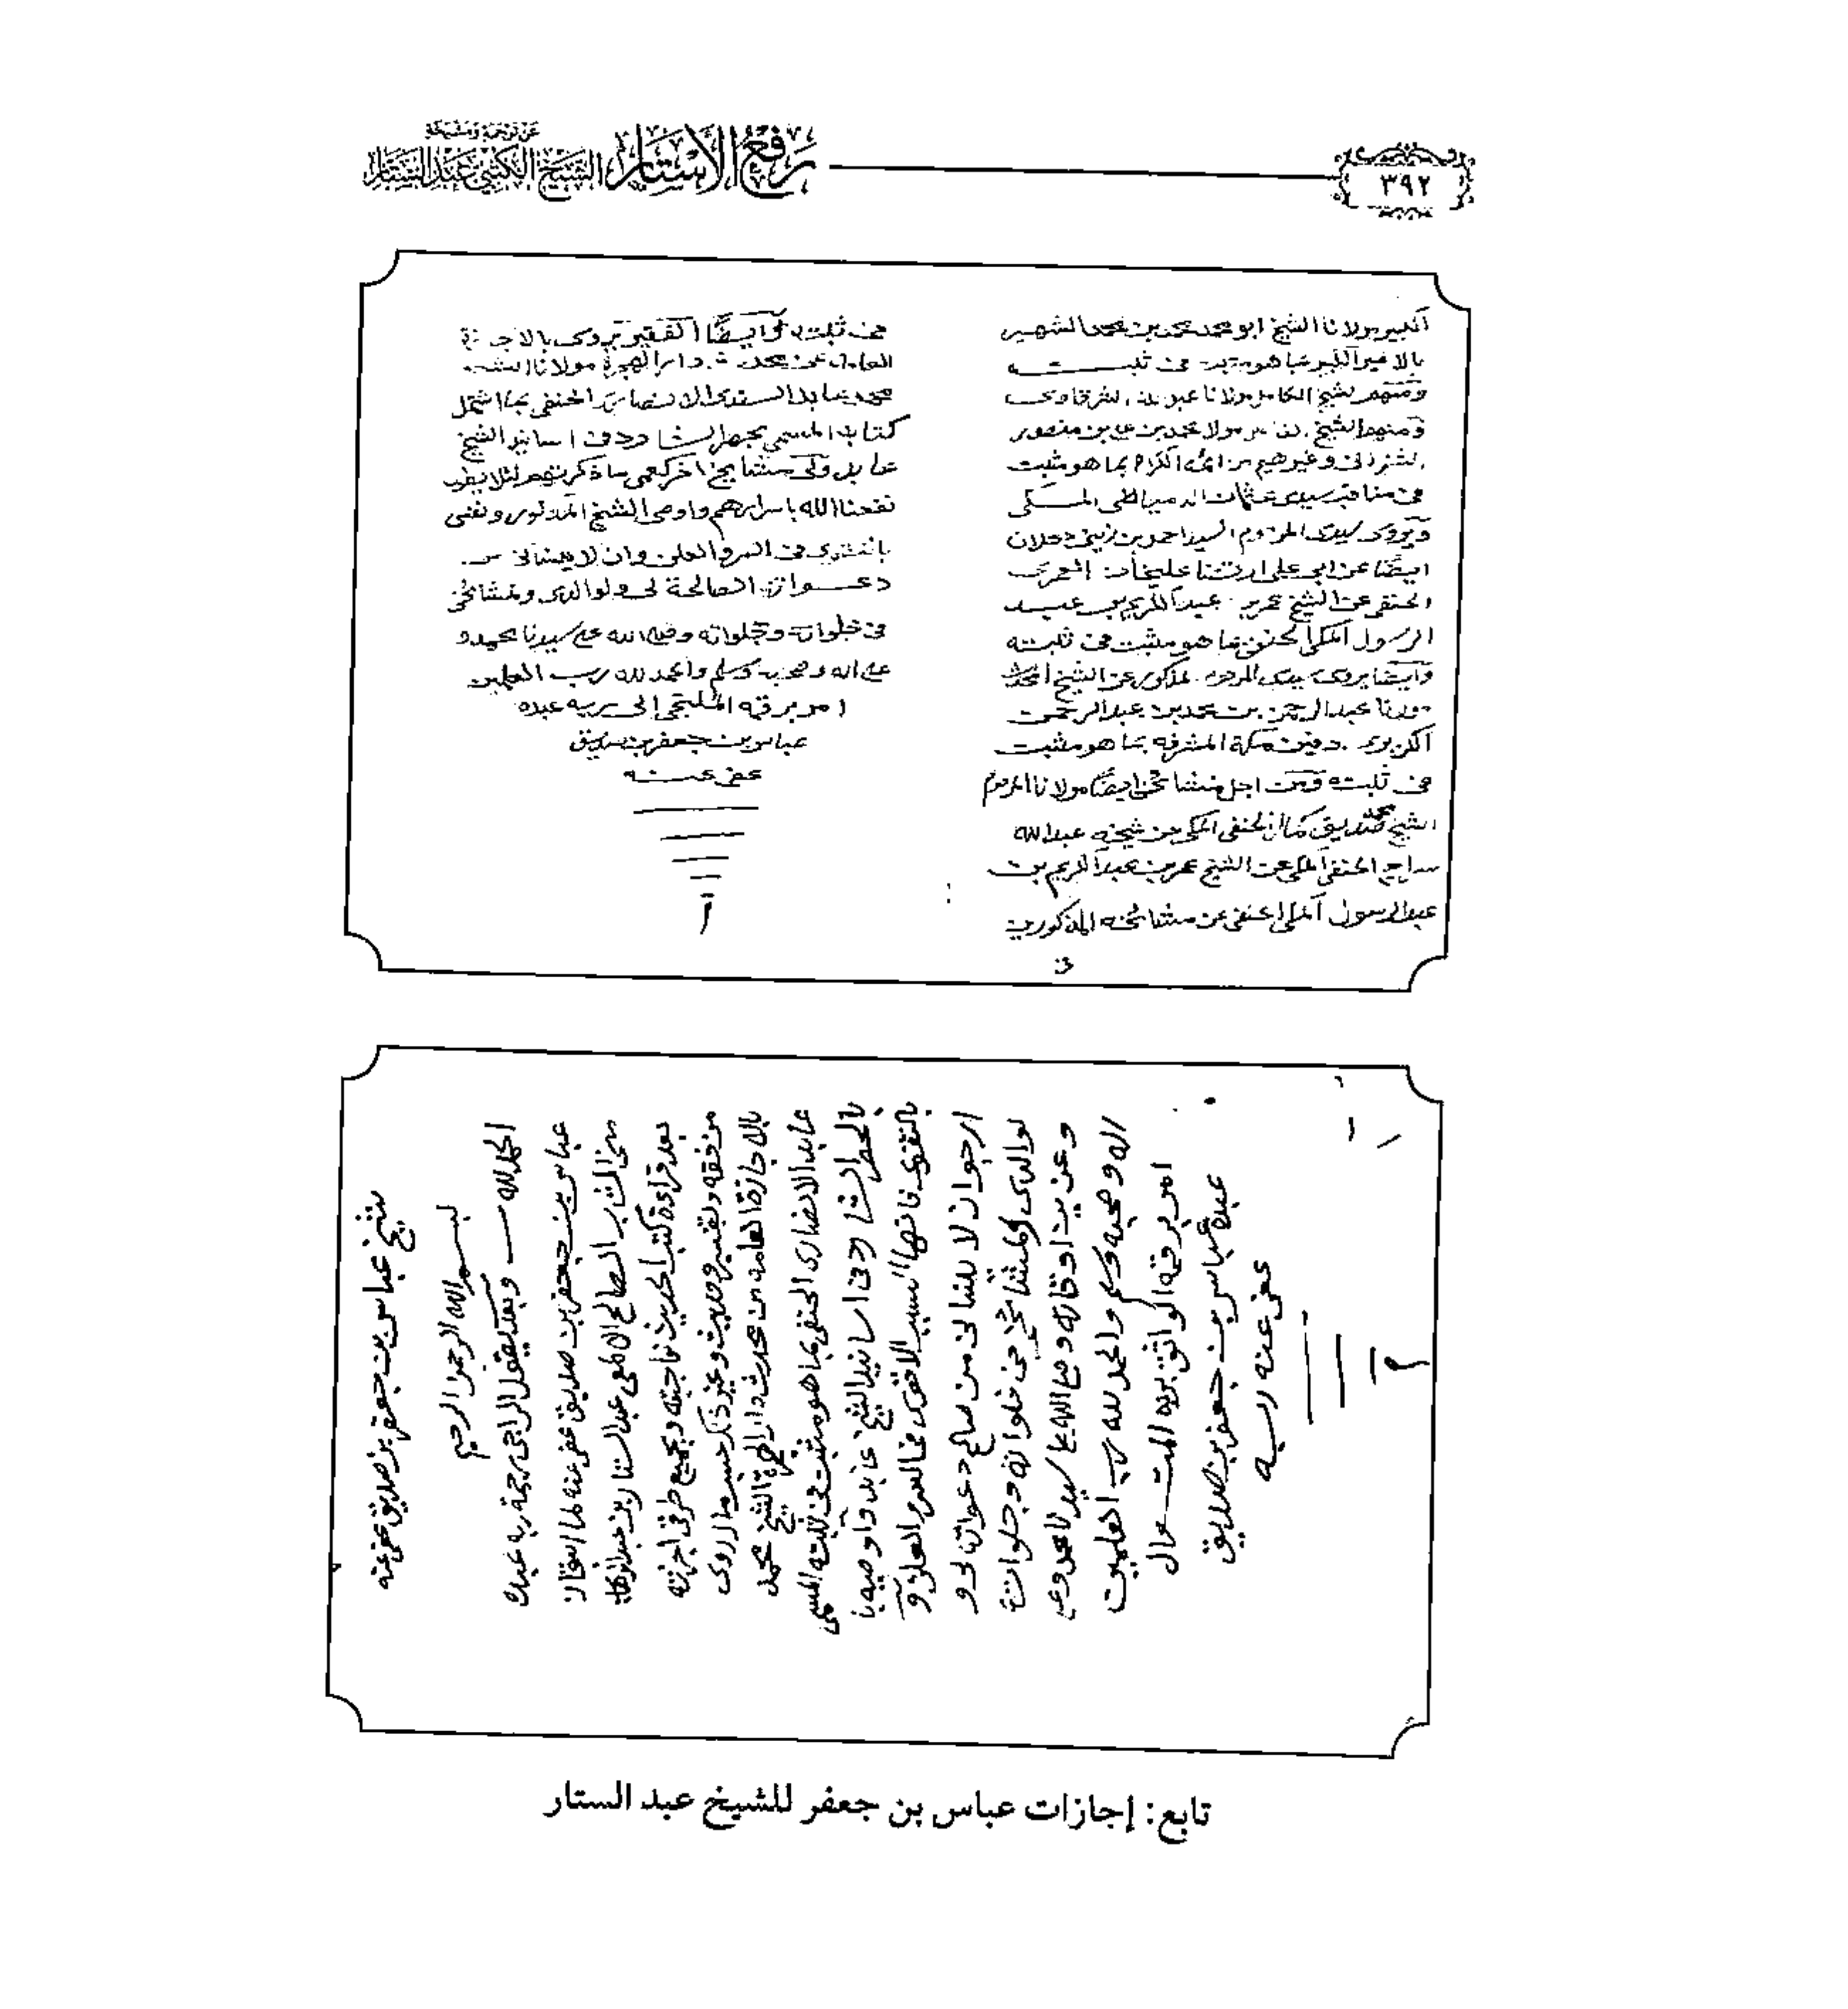 ٣٩٢
رفع الأستار
عن ترجمة ومشيخة
الشيخ الكتبي عبد الستار
الكبير مولانا الشيخ ابو محمد محمد بن محمد الشهير
بالامير الكبير بما هو مثبت في ثبته
ومنهم الشيخ الكامل مولانا عبد الله الشرقاوي
ومنهم الشيخ مولانا محمد بن علي بن منصور
الشنواني وغيرهم من ائمة الكرام بما هو مثبت
في مناقب سيدي عثمان الدمياطي المكي
ويروي سيدي المرحوم السيد احمد بن زيني دحلان
ايضا عن ابي علي ارتضا عليخان العمري
الحنفي عن الشيخ عمر بن عبد الكريم بن عبد
الرسول المكي الحنفي بما هو مثبت في ثبته
وايضا يروي سيدي المرحوم المذكور عن الشيخ المحدث
مولانا عبد الرحمن بن محمد بن عبد الرحمن
الكزبري دفين مكة المشرفه بما هو مثبت
في ثبته ومن اجل مشائخي ايضا مولانا المرحوم
الشيخ محمد صديق كمال الحنفي المكي عن شيخه عبد الله
سراج الحنفي المكي عن الشيخ عمر بن عبد الكريم بن
عبد الرسول المكي الحنفي عن مشائخه المذكورين
في
في ثبته وايضا الفقير يروي بالاجازة
العامة عن محدث دار الهجرة مولانا الشيخ
محمد عابد السندي الانصاري الحنفي بما اشتمل
كتابه المسمى بحصر الشارد في اسانيد الشيخ
عابد ولي مشائخ اخر كيمي ما ذكرتهم لئلا يطول
نفعنا الله باسرارهم واوصي الشيخ المذكور ونفسي
بالتقوى في السر والعلن وان لا ينساني من
دعواته الصالحة لي ولوالدي ومشائخي
في خلواته وجلواته وصلى الله على سيدنا محمد و
على اله وصحبه وسلم والحمد لله رب العلمين
امر برقمه الملتجي الى ربه عبده
عباس بن جعفر بن صديق
عفي عنه
شيخ عباس بن جعفر بن صديق عفي عنه
بسم الله الرحمن الرحيم
الحمد لله وبعد فيقول الراجي رحمة ربه عبده
عباس بن جعفر بن صديق عفي عنه لما التقاني
مني الشاب الصالح الالمعي عبد الستار بن عبد الوهاب
بعد قراءة كتب الحديث فاجبته وبجميع طرقي اجزته
من فقه وتفسير وحديث وغير ذلك حسبما اروي
بالاجازة العامه من محدث دار الهجرة الشيخ محمد
عابد الانصاري الحنفي بما هو مثبت في ثبته المسمى
بالحصر الشارد في اسانيد الشيخ عابد واوصيه با
بالتقوى فانها السبب الاقوى مخالف السر العلن و
ارجو ان لا ينساني من صالح دعواته لي و
لوالدي ولمشائخي في خلواته وجلواته
وعزيز اوقاته وصلى الله على سيدنا محمد وعلى
اله وصحبه وسلم والحمد لله رب العلمين
امر برقمه الواثق بربه المتعال
عبده عباس بن جعفر بن صديق
عفي عنه ربه
تابع: إجازات عباس بن جعفر للشيخ عبد الستار